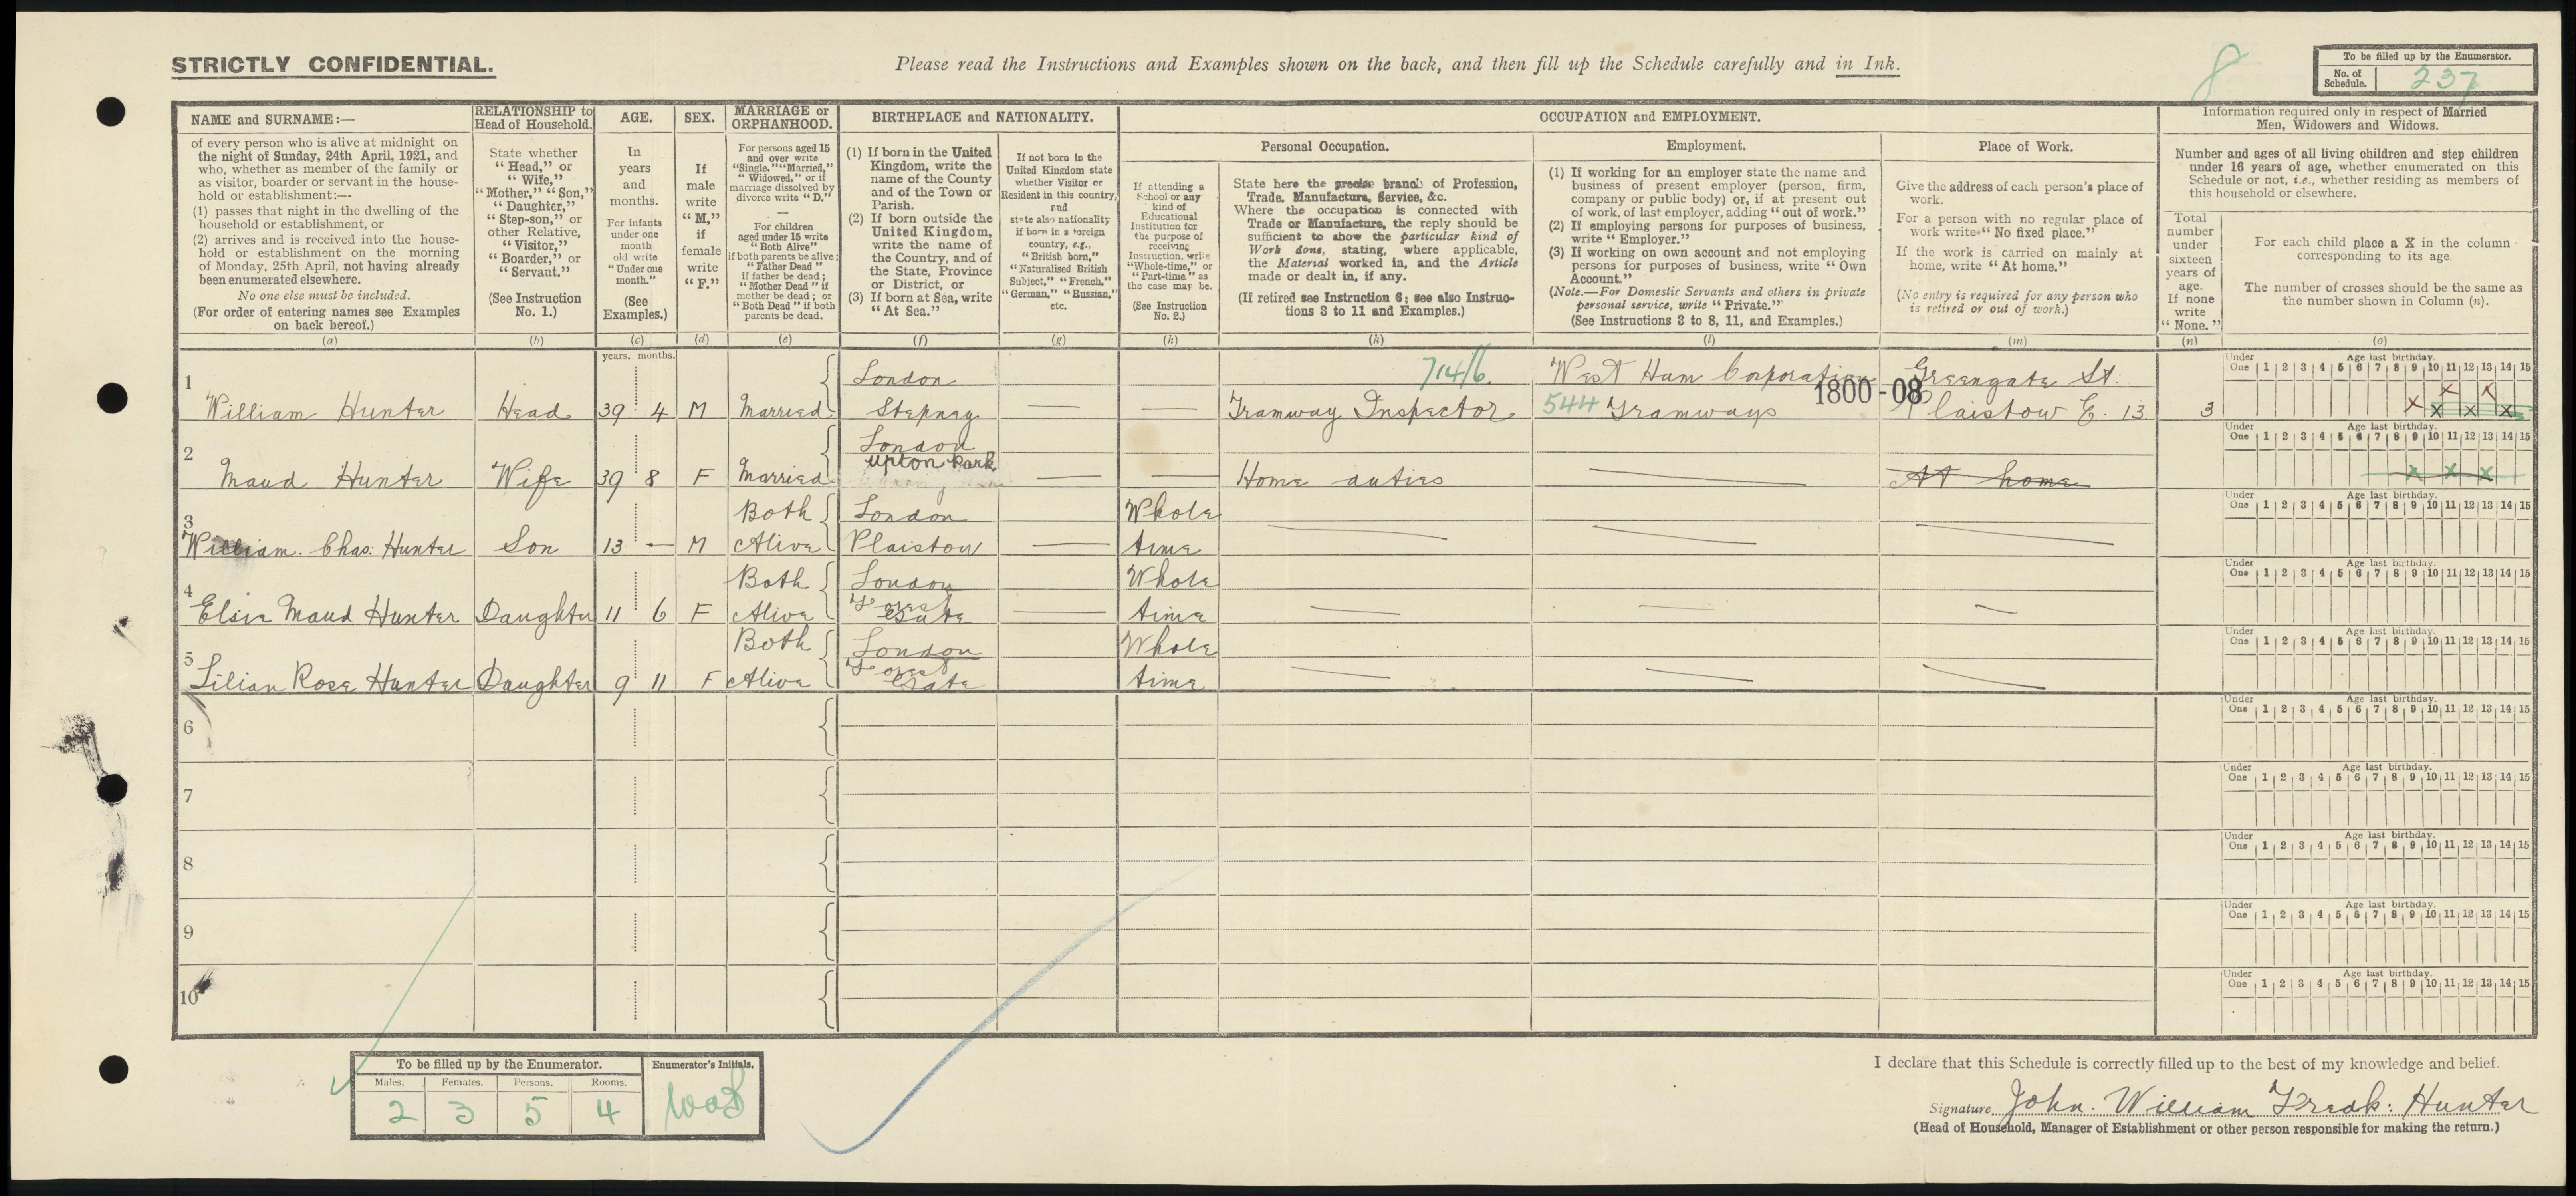 STRICTLY CONFIDENTIAL.
Please read the Instructions and Examples shown on the back, and then fill up the Schedule carefully and in Ink.
8
To be filled up by the Enumerator.
No. of Schedule. 237
NAME and SURNAME:—
of every person who is alive at midnight on
the night of Sunday, 24th April, 1921, and
who, whether as member of the family or
as visitor, boarder or servant in the house-
hold or establishment:—
(1) passes that night in the dwelling of the
household or establishment, or
(2) arrives and is received into the house-
hold or establishment on the morning
of Monday, 25th April, not having already
been enumerated elsewhere.
No one else must be included.
(For order of entering names see Examples
on back hereof.)
(a)
RELATIONSHIP to
Head of Household.
State whether
"Head," or
"Wife,"
"Mother," "Son,"
"Daughter,"
"Step-son," or
other Relative,
"Visitor,"
"Boarder," or
"Servant."
(See Instruction
No. 1.)
(b)
AGE.
In
years
and
months.
For infants
under one
month
old write
"Under one
month."
(See
Examples.)
(c)
SEX.
If
male
write
"M,"
if
female
write
"F."
(d)
MARRIAGE or
ORPHANHOOD.
For persons aged 15
and over write
"Single," "Married,"
"Widowed," or if
marriage dissolved by
divorce write "D."
—
For children
aged under 15 write
"Both Alive"
if both parents be alive;
"Father Dead"
if father be dead;
"Mother Dead" if
mother be dead; or
"Both Dead" if both
parents be dead.
(e)
BIRTHPLACE and NATIONALITY.
(1) If born in the United
Kingdom, write the
name of the County
and of the Town or
Parish.
(2) If born outside the
United Kingdom,
write the name of
the Country, and of
the State, Province
or District, or
(3) If born at Sea, write
"At Sea."
(f)
If not born in the
United Kingdom state
whether Visitor or
Resident in this country,
and
state also nationality
if born in a foreign
country, e.g.,
"British born,"
"Naturalised British
Subject," "French,"
"German," "Russian,"
etc.
(g)
OCCUPATION and EMPLOYMENT.
If attending a
School or any
kind of
Educational
Institution for
the purpose of
receiving
Instruction, write
"Whole-time," or
"Part-time" as
the case may be.
(See Instruction
No. 2.)
(h)
Personal Occupation.
State here the precise branch of Profession,
Trade, Manufacture, Service, &c.
Where the occupation is connected with
Trade or Manufacture, the reply should be
sufficient to show the particular kind of
Work done, stating, where applicable,
the Material worked in, and the Article
made or dealt in, if any.
(If retired see Instruction 6; see also Instruc-
tions 3 to 11 and Examples.)
(k)
Employment.
(1) If working for an employer state the name and
business of present employer (person, firm,
company or public body) or, if at present out
of work, of last employer, adding "out of work."
(2) If employing persons for purposes of business,
write "Employer."
(3) If working on own account and not employing
persons for purposes of business, write "Own
Account."
(Note.—For Domestic Servants and others in private
personal service, write "Private."
(See Instructions 3 to 8, 11, and Examples.)
(l)
Place of Work.
Give the address of each person's place of
work.
For a person with no regular place of
work write "No fixed place."
If the work is carried on mainly at
home, write "At home."
(No entry is required for any person who
is retired or out of work.)
(m)
Information required only in respect of Married
Men, Widowers and Widows.
Number and ages of all living children and step children
under 16 years of age, whether enumerated on this
Schedule or not, i.e., whether residing as members of
this household or elsewhere.
Total
number
under
sixteen
years of
age.
If none
write
"None."
(n)
For each child place a X in the column
corresponding to its age.
The number of crosses should be the same as
the number shown in Column (n).
(o)
years. months.
Under One Age last birthday. 1 2 3 4 5 6 7 8 9 10 11 12 13 14 15
1 London 714/6. West Ham Corporation Greengate St. X X
William Hunter Head 39 4 M Married Stepney — — Tramway Inspector 544 Tramways 1800-08 Plaistow E. 13 3 X X X X
Under One Age last birthday. 1 2 3 4 5 6 7 8 9 10 11 12 13 14 15
2 London
Upton Park
Maud Hunter Wife 39 8 F Married — — Home duties — At home X X X
Under One Age last birthday. 1 2 3 4 5 6 7 8 9 10 11 12 13 14 15
3 Both London Whole
William. Chas: Hunter Son 13 — M Alive Plaistow — time — — —
Under One Age last birthday. 1 2 3 4 5 6 7 8 9 10 11 12 13 14 15
4 Both London Whole
Elsie Maud Hunter Daughter 11 6 F Alive Forest Gate — time — — —
Under One Age last birthday. 1 2 3 4 5 6 7 8 9 10 11 12 13 14 15
5 Both London Whole
Lilian Rose Hunter Daughter 9 11 F Alive Forest Gate time — — —
Under One Age last birthday. 1 2 3 4 5 6 7 8 9 10 11 12 13 14 15
6
Under One Age last birthday. 1 2 3 4 5 6 7 8 9 10 11 12 13 14 15
7
Under One Age last birthday. 1 2 3 4 5 6 7 8 9 10 11 12 13 14 15
8
Under One Age last birthday. 1 2 3 4 5 6 7 8 9 10 11 12 13 14 15
9
Under One Age last birthday. 1 2 3 4 5 6 7 8 9 10 11 12 13 14 15
10
To be filled up by the Enumerator.
Males. Females. Persons. Rooms.
2 3 5 4
Enumerator's Initials.
I declare that this Schedule is correctly filled up to the best of my knowledge and belief.
Signature John. William Fredk: Hunter
(Head of Household, Manager of Establishment or other person responsible for making the return.)